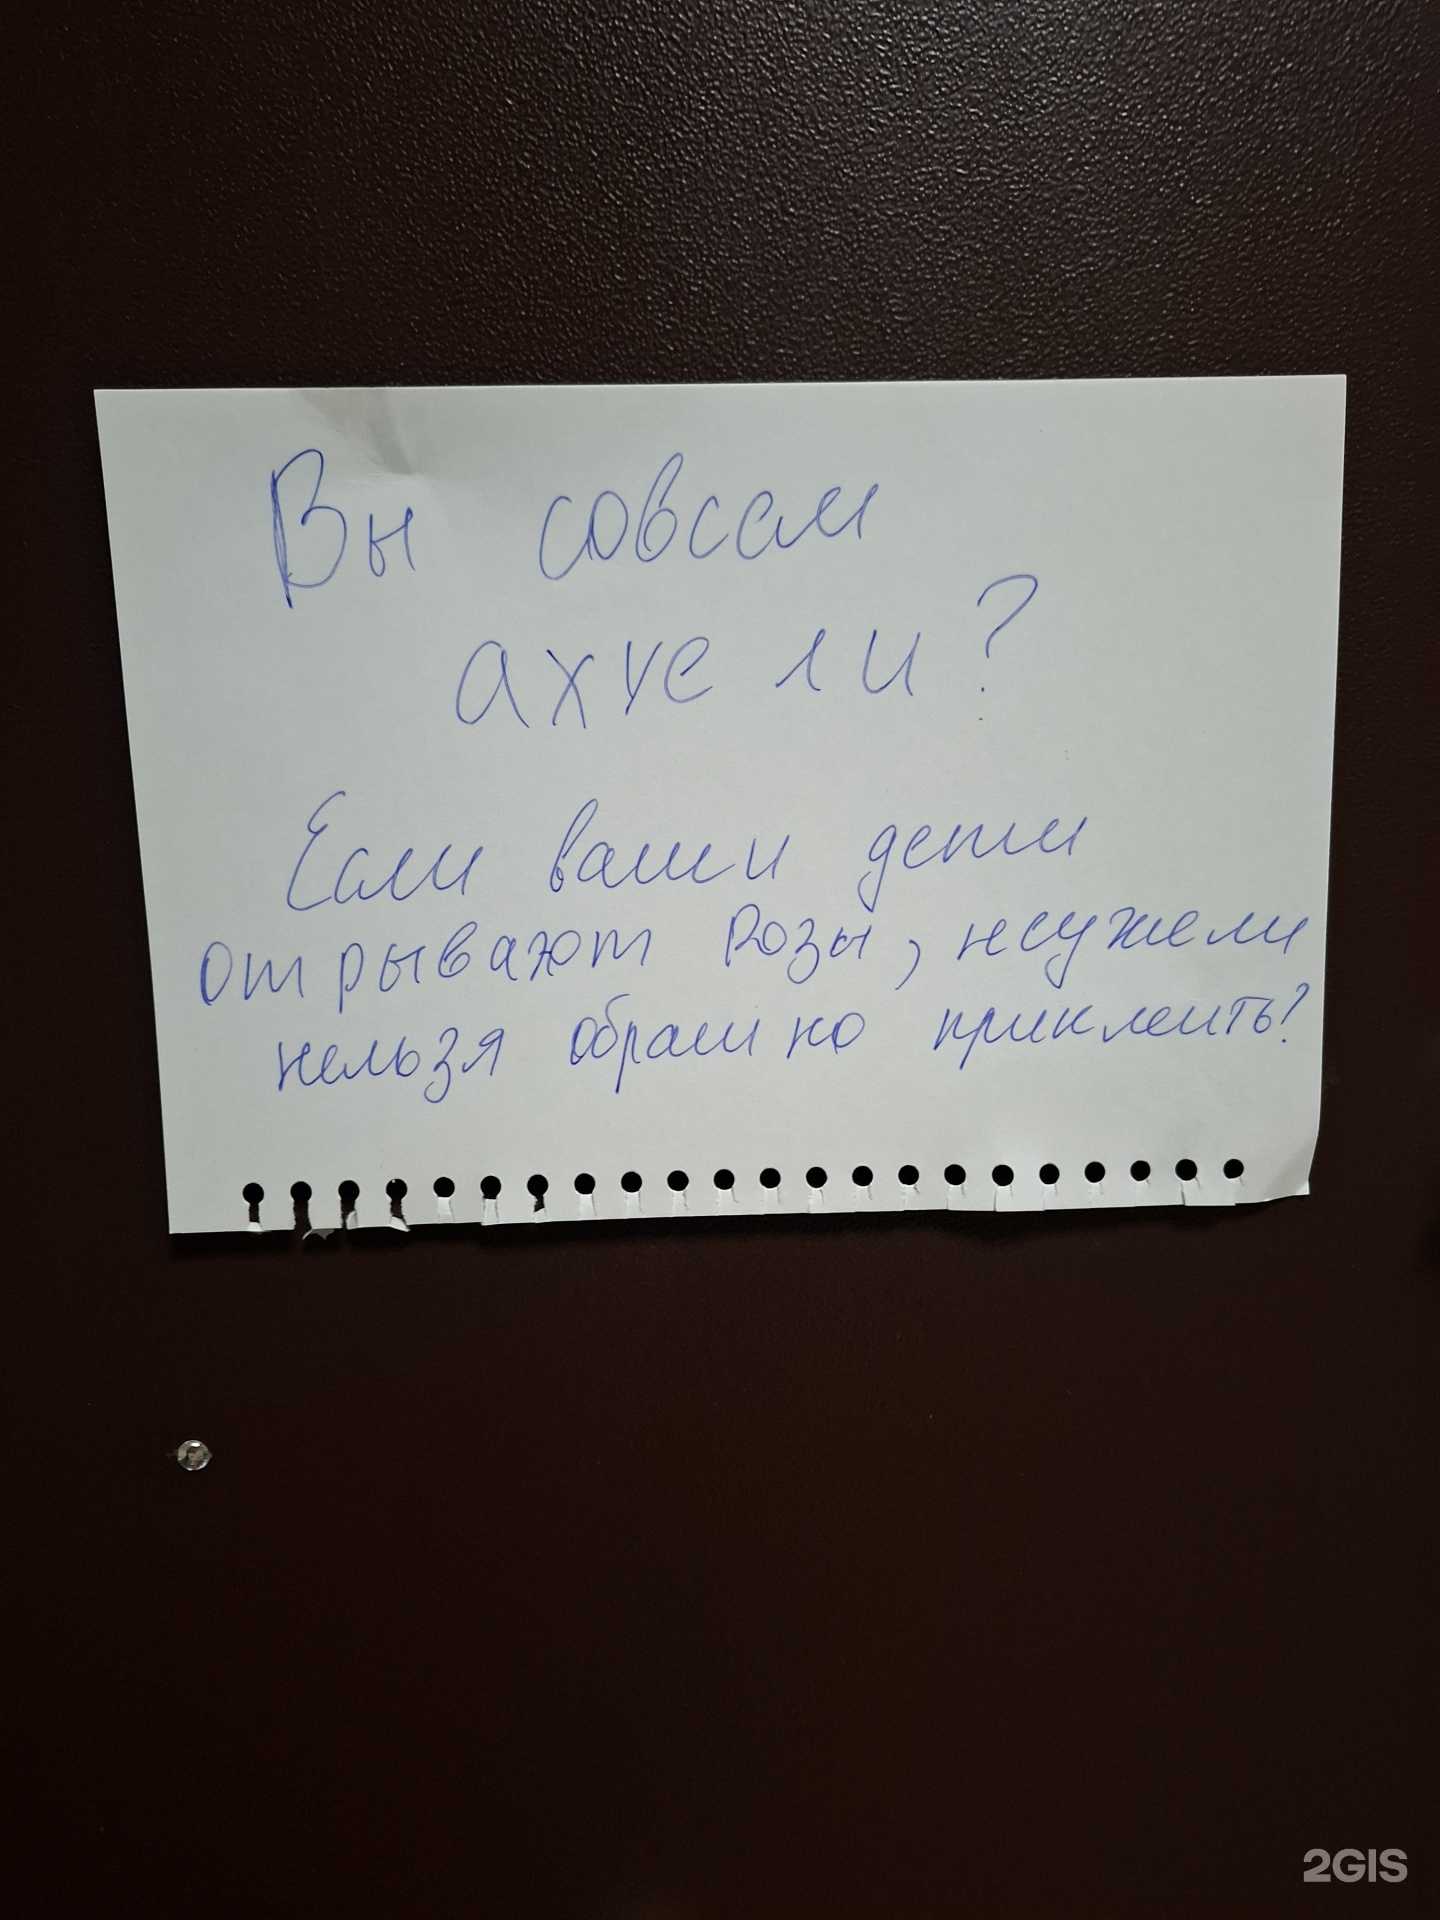 Вы совсем
ахуели?
Если ваши дети
отрывают розы, неужели
нельзя обратно приклеить?
2GIS